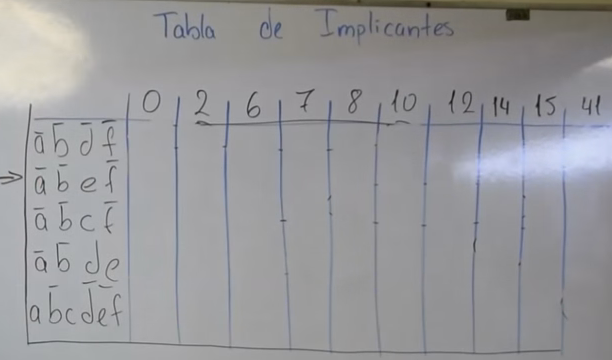 Tabla de Implicantes
0 2 6 7 8 10 12 14 15 41
a̅ b̅ d̅ f̅
⇒ a̅ b̅ e f̅
a̅ b̅ c f̅
a̅ b̅ d e
a b̅ c d̅ e̅ f